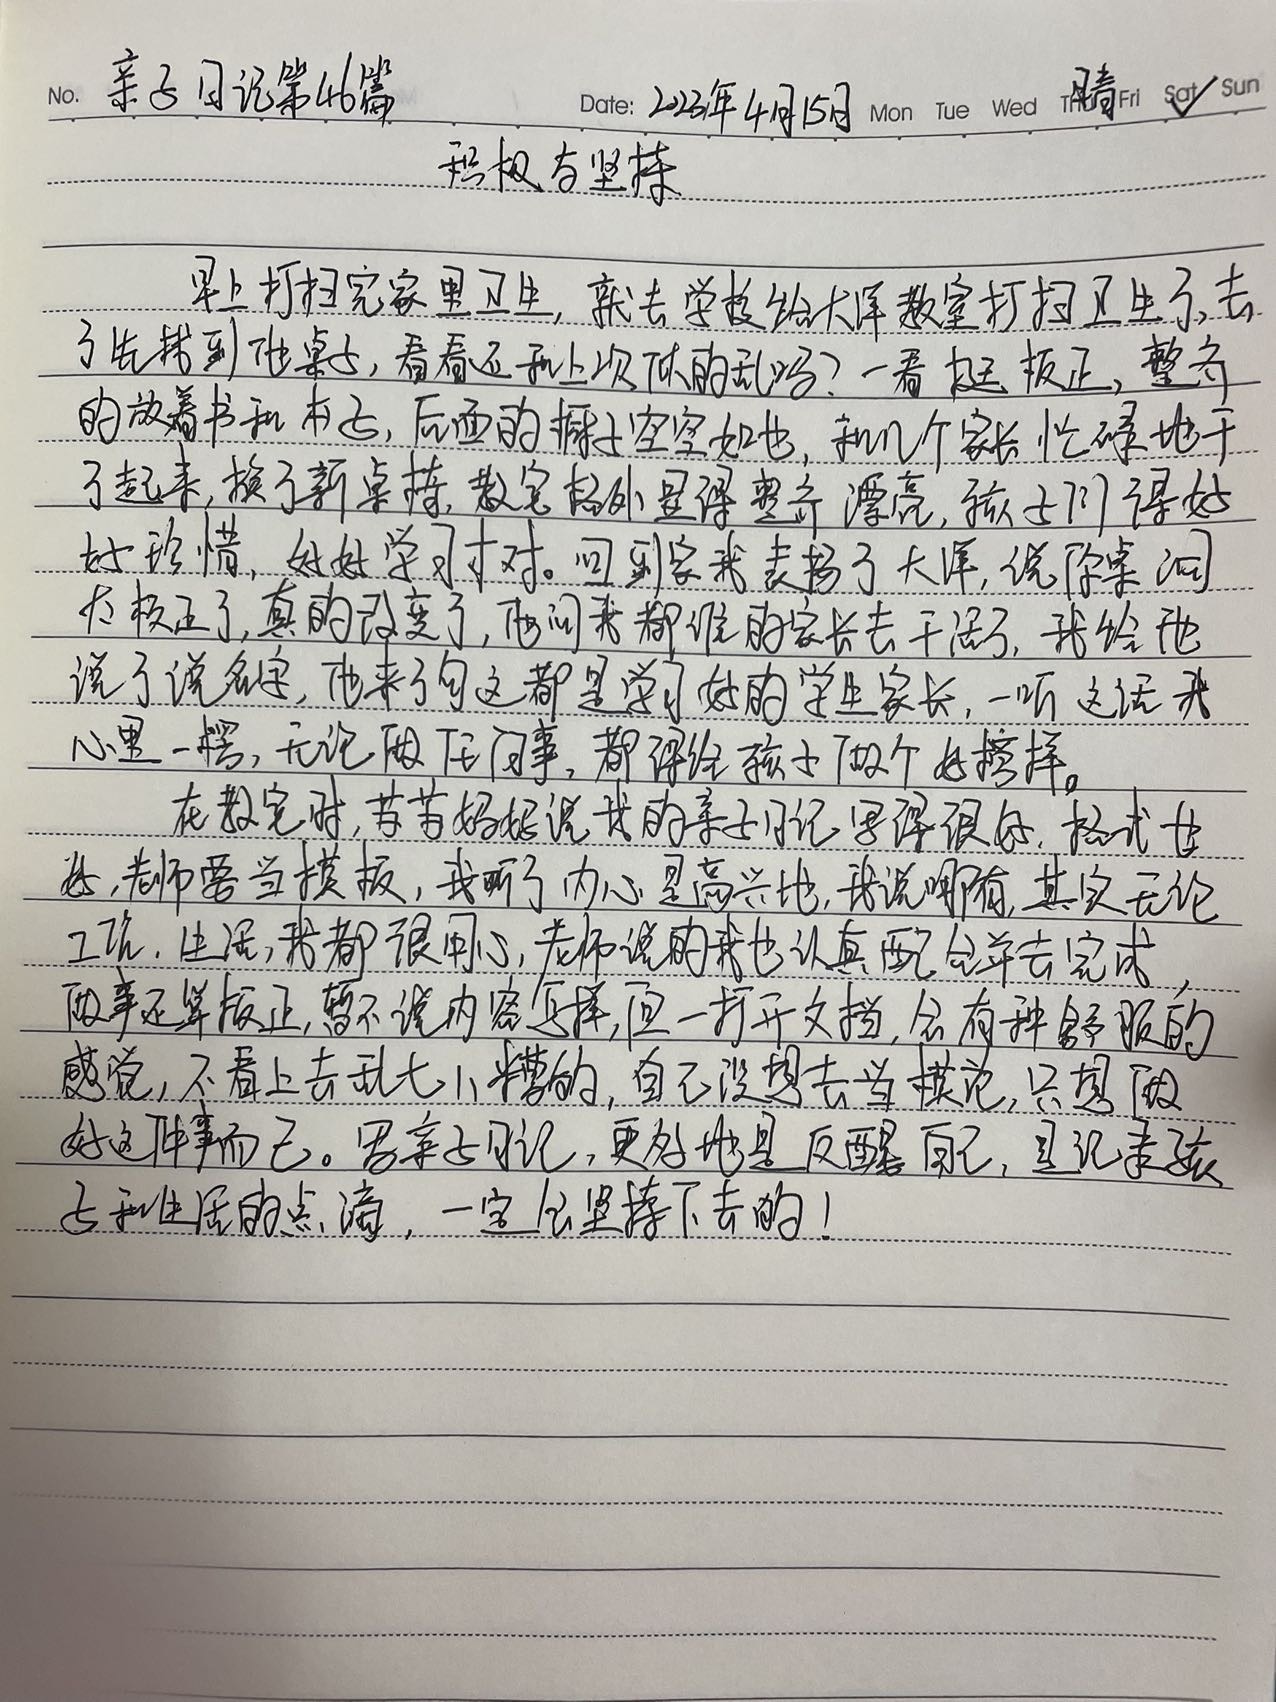 No. 亲子日记第46篇
Date: 2023年4月15日 Mon Tue Wed Thu 晴 Fri Sat✓ Sun
积极与坚持
早上打扫完家里卫生，就去学校给大洋教室打扫卫生了，去
了先找到他桌子，看看还和上次似的乱吗？一看挺板正，整齐
的放着书和本子，后面的橱子空空如也，和几个家长忙碌地干
了起来，换了新桌椅，教室格外显得整齐漂亮，孩子们得好
好珍惜，好好学习才对。回到家我表扬了大洋，说你桌洞
太板正了，真的改变了，他问我都谁的家长去干活了，我给他
说了说名字，他来了句这都是学习好的学生家长，一听这话我
心里一愣，无论做任何事，都得给孩子做个好榜样。
在教室时，苦苦妈妈说我的亲子日记写得很好，格式也
好，老师要当模板，我听了内心是高兴地，我说哪有，其实无论
工作、生活，我都很用心，老师说的我也认真配合并去完成，
做事还算板正，暂不说内容怎样，但一打开文档，会有种舒服的
感觉，不看上去乱七八糟的，自己没想去当模范，只想做
好这件事而已。写亲子日记，更多地是反醒自己，是记录孩
子和生活的点滴，一定会坚持下去的！